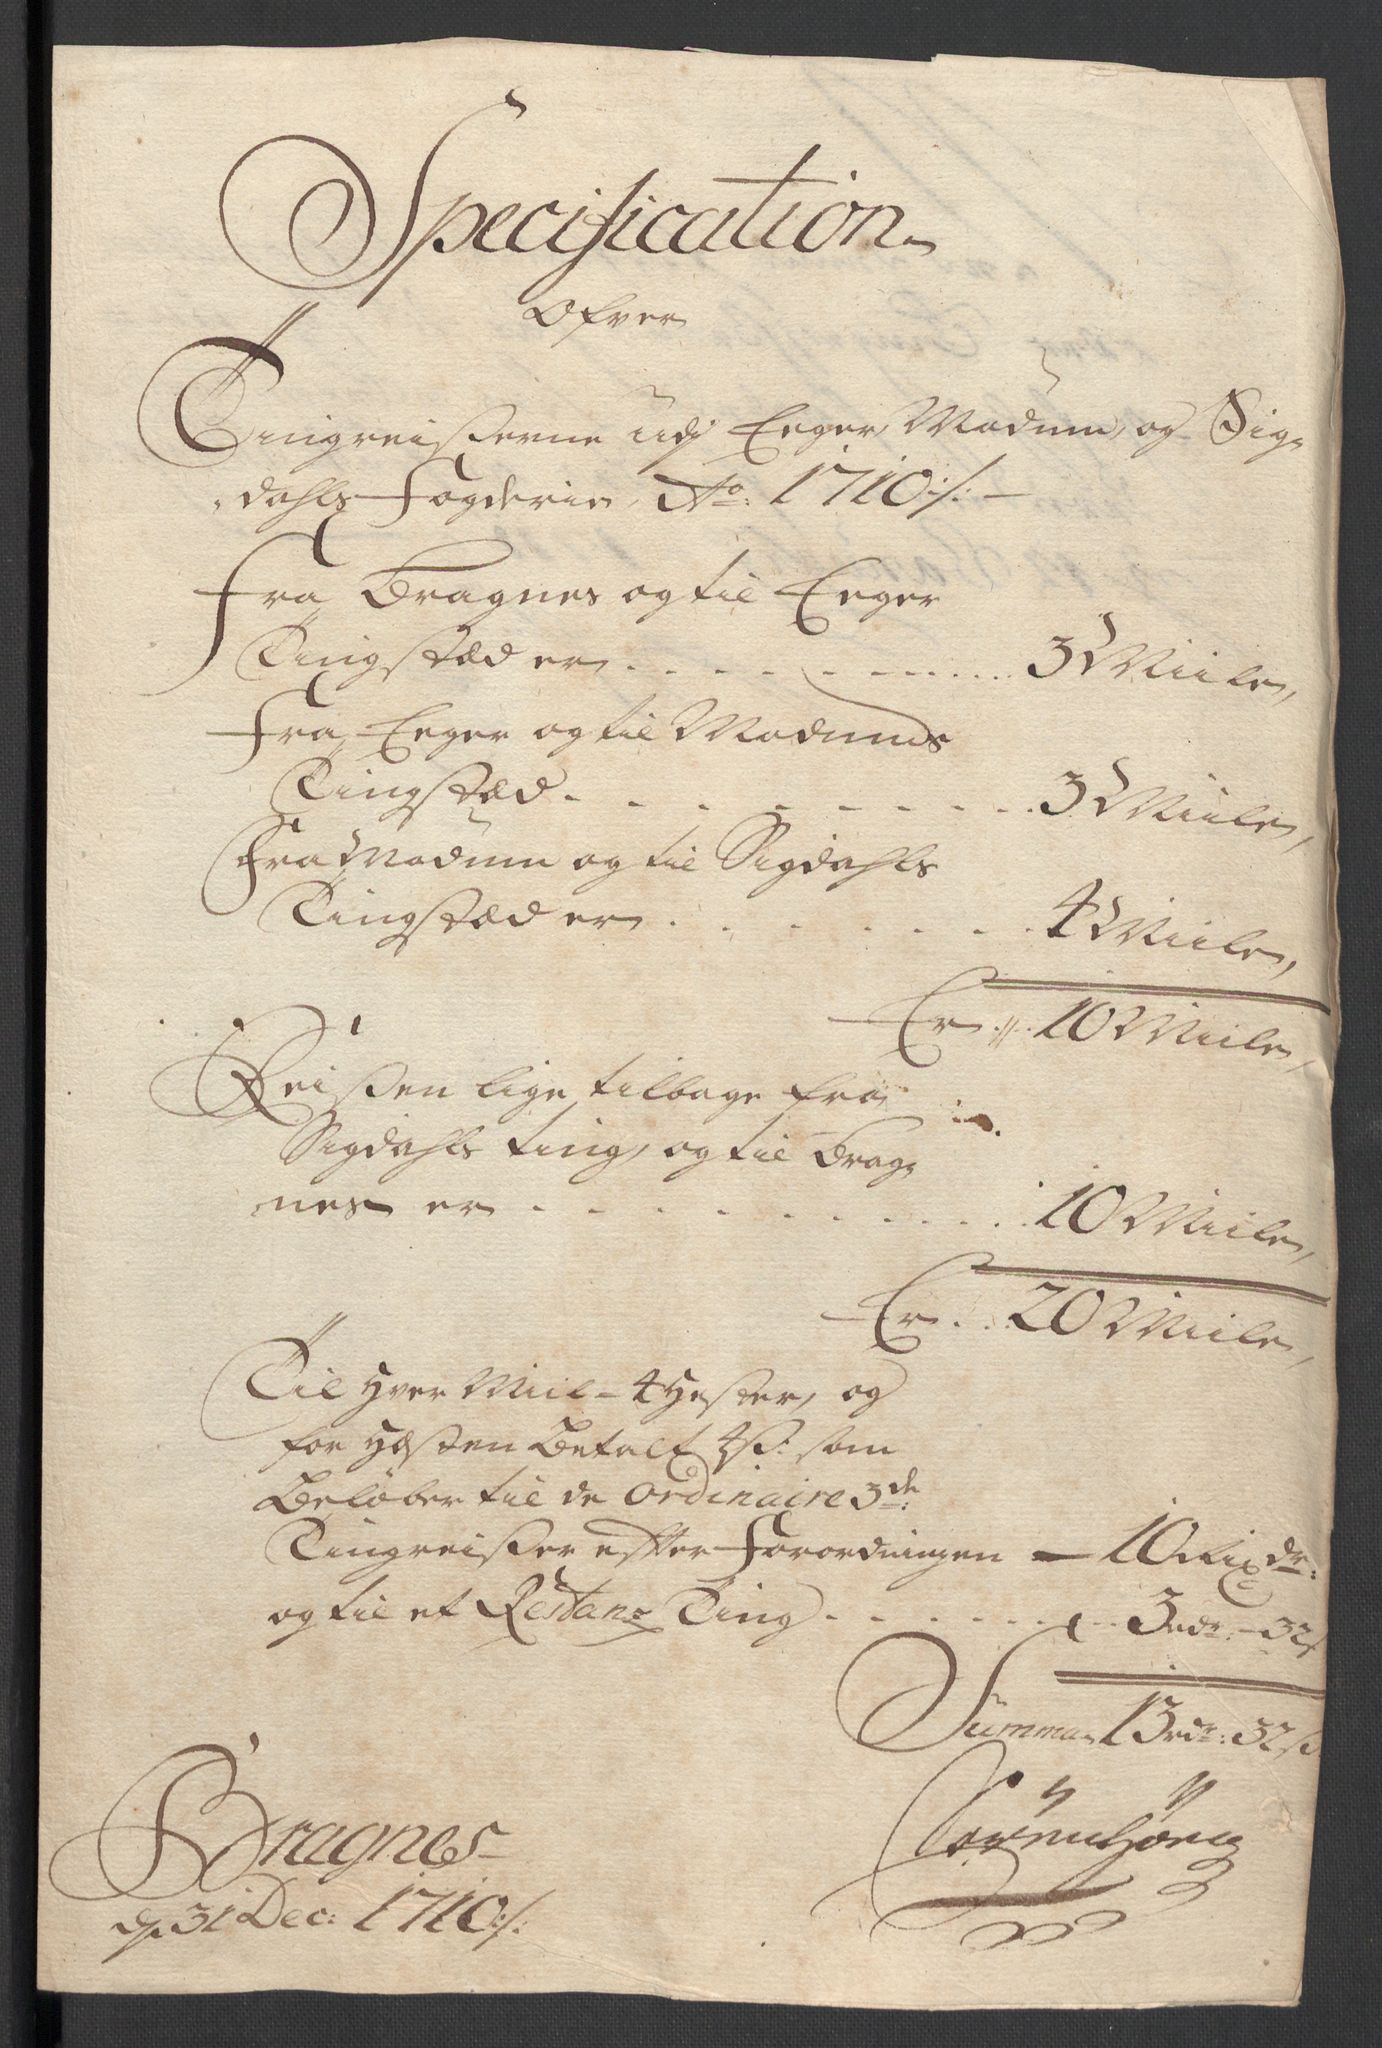 Specification
Ofver
Tingreißerne udj Eeger, Modum, og Sig-
dahls Fogderie, Ao: 1710 ./.
Fra Bragnes og til Eeger
Tingstæd er . . . . . . . . 3 Miile,
Fra Eeger og til Modums
Tingstæd . . . . . . . . 3 Miile,
Fra Modum og til Sigdahls
Tingstæd er . . . . . . . 4 Miile,
Er .//. 10 Miile,
Reißen lige tilbage fra
Sigdahls ting, og til Brag-
nes er . . . . . . . . 10 Miile,
Er . . 20 Miile,
Til hver Miil 4 Hester, og
for Hæsten Betalt 4 ß: som
Beløber til de Ordinaire 3de:
Tingreißer efter Forordningen — 10 Rixdr:
og til et Restanz Ting . . . . . . . 3 rdr: — 32 ß
Summa 13 rdr: 32 ß.
Bragnes
dn. 31 Dec: 1710 ./.